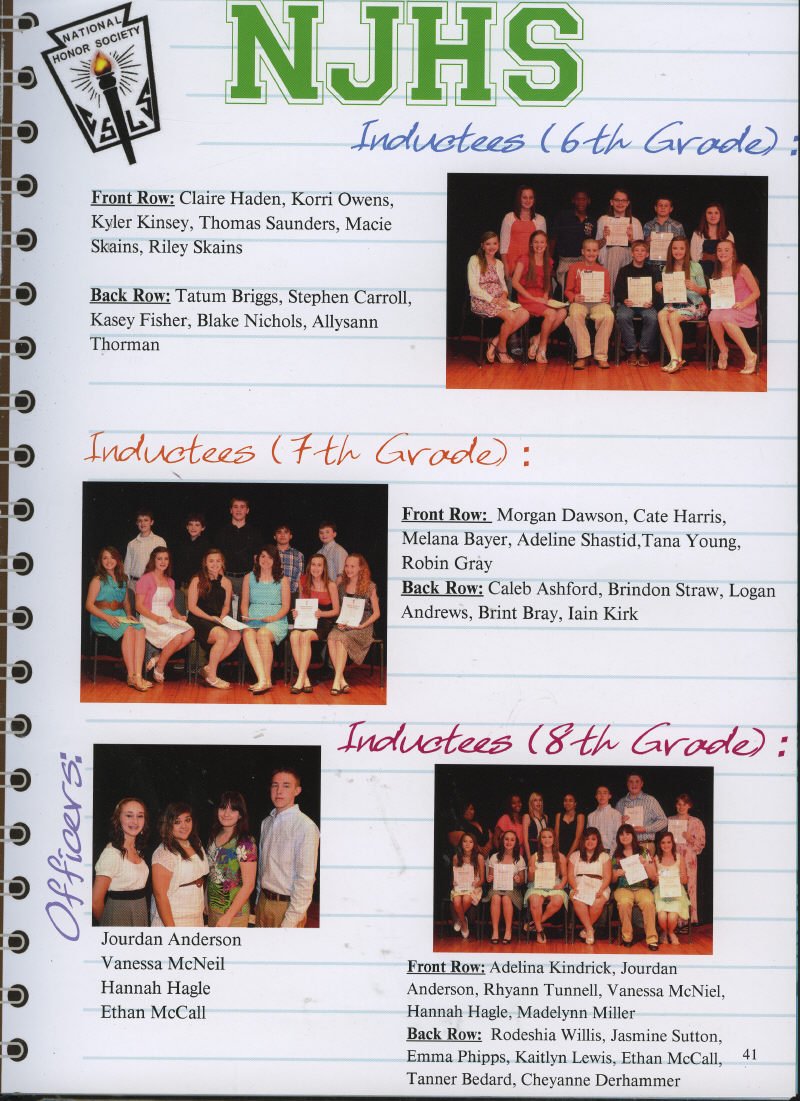 NATIONAL
HONOR SOCIETY
CSLS
NJHS
Inductees (6th Grade) :
Front Row: Claire Haden, Korri Owens,
Kyler Kinsey, Thomas Saunders, Macie
Skains, Riley Skains
Back Row: Tatum Briggs, Stephen Carroll,
Kasey Fisher, Blake Nichols, Allysann
Thorman
Inductees (7th Grade) :
Front Row: Morgan Dawson, Cate Harris,
Melana Bayer, Adeline Shastid,Tana Young,
Robin Gray
Back Row: Caleb Ashford, Brindon Straw, Logan
Andrews, Brint Bray, Iain Kirk
Officers:
Jourdan Anderson
Vanessa McNeil
Hannah Hagle
Ethan McCall
Inductees (8th Grade) :
Front Row: Adelina Kindrick, Jourdan
Anderson, Rhyann Tunnell, Vanessa McNiel,
Hannah Hagle, Madelynn Miller
Back Row: Rodeshia Willis, Jasmine Sutton,
Emma Phipps, Kaitlyn Lewis, Ethan McCall,
Tanner Bedard, Cheyanne Derhammer
41